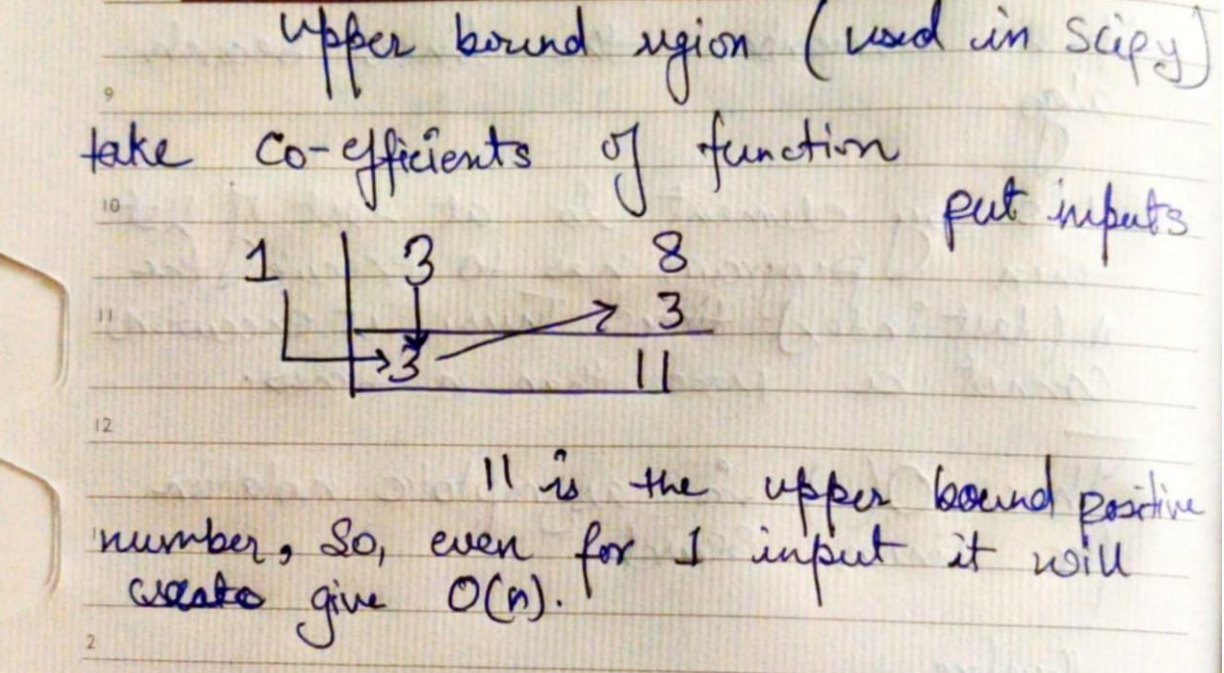 Upper bound region (used in Scipy)
9
take Co-efficients of function
10
put inputs
1 3 8
11 3
3 11
12
11 is the upper bound positive
number, So, even for 1 input it will
give O(n).
2